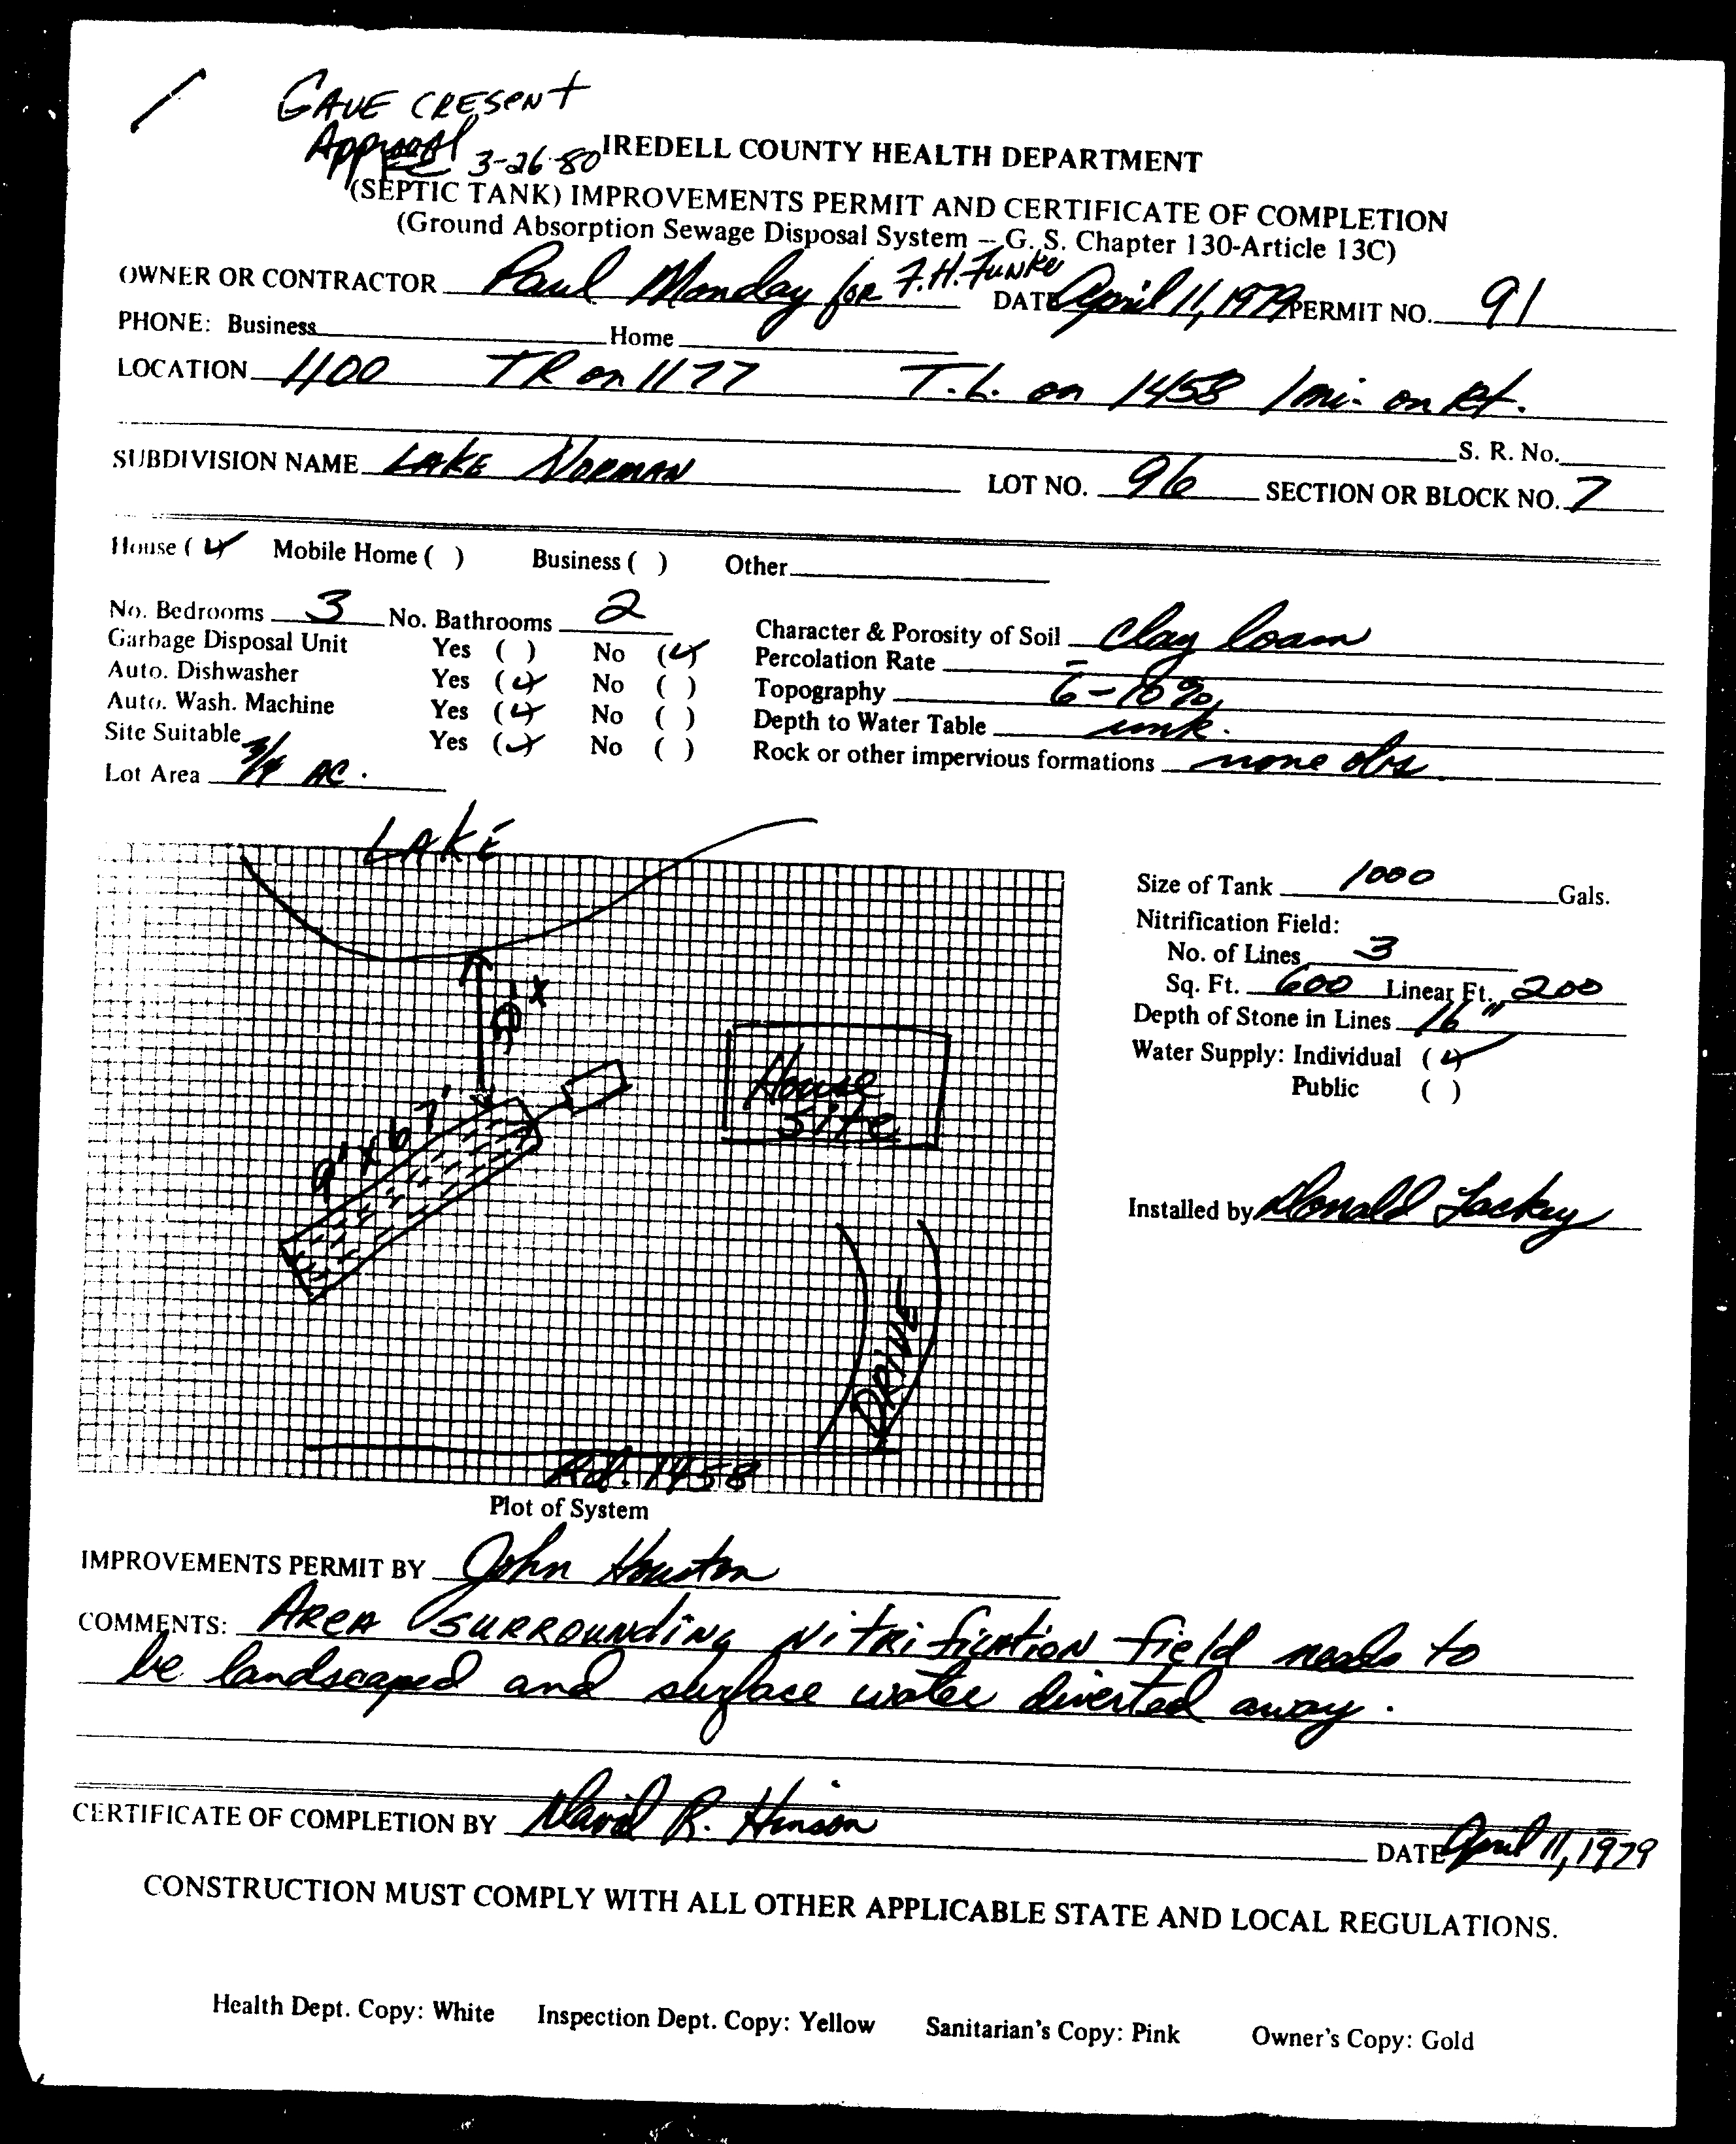 GAVE CRESENT
Approval 3-26-80
IREDELL COUNTY HEALTH DEPARTMENT
(SEPTIC TANK) IMPROVEMENTS PERMIT AND CERTIFICATE OF COMPLETION
(Ground Absorption Sewage Disposal System – G. S. Chapter 130-Article 13C)
OWNER OR CONTRACTOR Paul Monday for F.H. Funke DATE April 11, 1979 PERMIT NO. 91
PHONE: Business Home
LOCATION 1100 TR on 1177 T.L. on 1458 1 mi. on Rt.
S. R. No.
SUBDIVISION NAME LAKE NORMAN LOT NO. 96 SECTION OR BLOCK NO. 7
House (✓) Mobile Home ( ) Business ( ) Other
No. Bedrooms 3 No. Bathrooms 2
Garbage Disposal Unit Yes ( ) No (✓)
Auto. Dishwasher Yes (✓) No ( )
Auto. Wash. Machine Yes (✓) No ( )
Site Suitable Yes (✓) No ( )
Lot Area 3/4 AC.
Character & Porosity of Soil Clay loam
Percolation Rate –
Topography 6-10%
Depth to Water Table unk.
Rock or other impervious formations none obs.
LAKE
House
Site
9' x 67'
DRIVE
Rd. 1458
Plot of System
Size of Tank 1000 Gals.
Nitrification Field:
No. of Lines 3
Sq. Ft. 600 Linear Ft. 200
Depth of Stone in Lines 16"
Water Supply: Individual (✓)
Public ( )
Installed by Donald Lackey
IMPROVEMENTS PERMIT BY John Houston
COMMENTS: AREA SURROUNDING NitRification field needs to
be landscaped and surface water diverted away.
CERTIFICATE OF COMPLETION BY David R. Hinson
DATE April 11, 1979
CONSTRUCTION MUST COMPLY WITH ALL OTHER APPLICABLE STATE AND LOCAL REGULATIONS.
Health Dept. Copy: White Inspection Dept. Copy: Yellow Sanitarian's Copy: Pink Owner's Copy: Gold